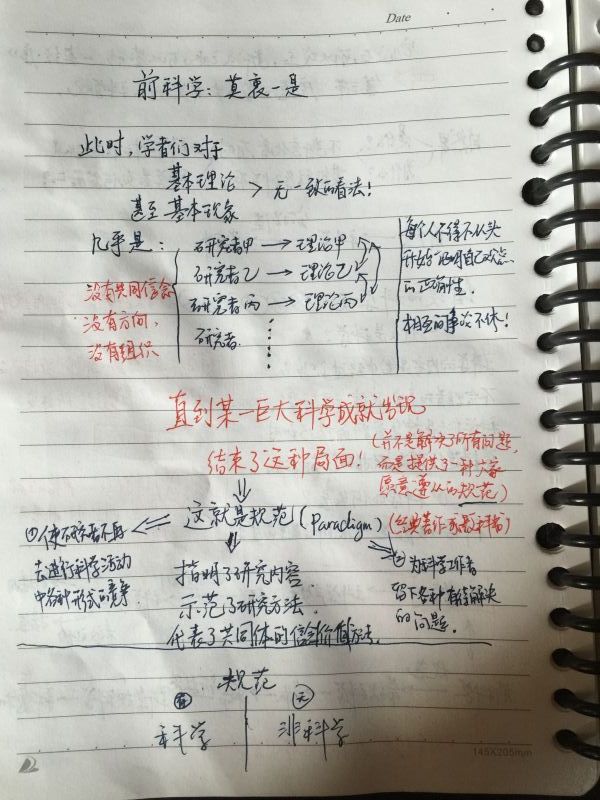 Date
前科学：莫衷一是
此时，学者们对于
基本理论
甚至 基本现象
> 无一致的看法！
几乎是：
研究者甲 → 理论甲
研究者乙 → 理论乙
研究者丙 → 理论丙
研究者
没有共同信念
没有方向，
没有组织
每个人不得不从头
开始 证明自己观点
的正确性．
相互间争吵不休！
直到某一巨大科学成就出现
结束了这种局面！
（并不是解决了所有问题，
而是提供了一种大家
愿意遵从的规范）
这就是规范（Paradigm）
（经典著作或教科书）
①使研究者不再
去进行科学活动
中各种形式的竞争
指明了研究内容．
示范了研究方法．
代表了共同体的信念价值方法．
②为科学工作者
留下各种有待解决
的问题．
规范
有
无
科学
非科学
145X205mm